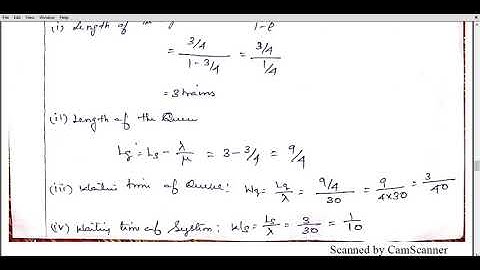 (i) Length of
1-ρ
= 3/4 / 1 - 3/4 = 3/4 / 1/4
= 3 trains
(ii) Length of the Queue
Lq = Ls - λ/μ = 3 - 3/4 = 9/4
(iii) Waiting time of Queue: Wq = Lq/λ = 9/4 / 30 = 9/4x30 = 3/40
(iv) Waiting time of System: Ws = Ls/λ = 3/30 = 1/10
Scanned by CamScanner